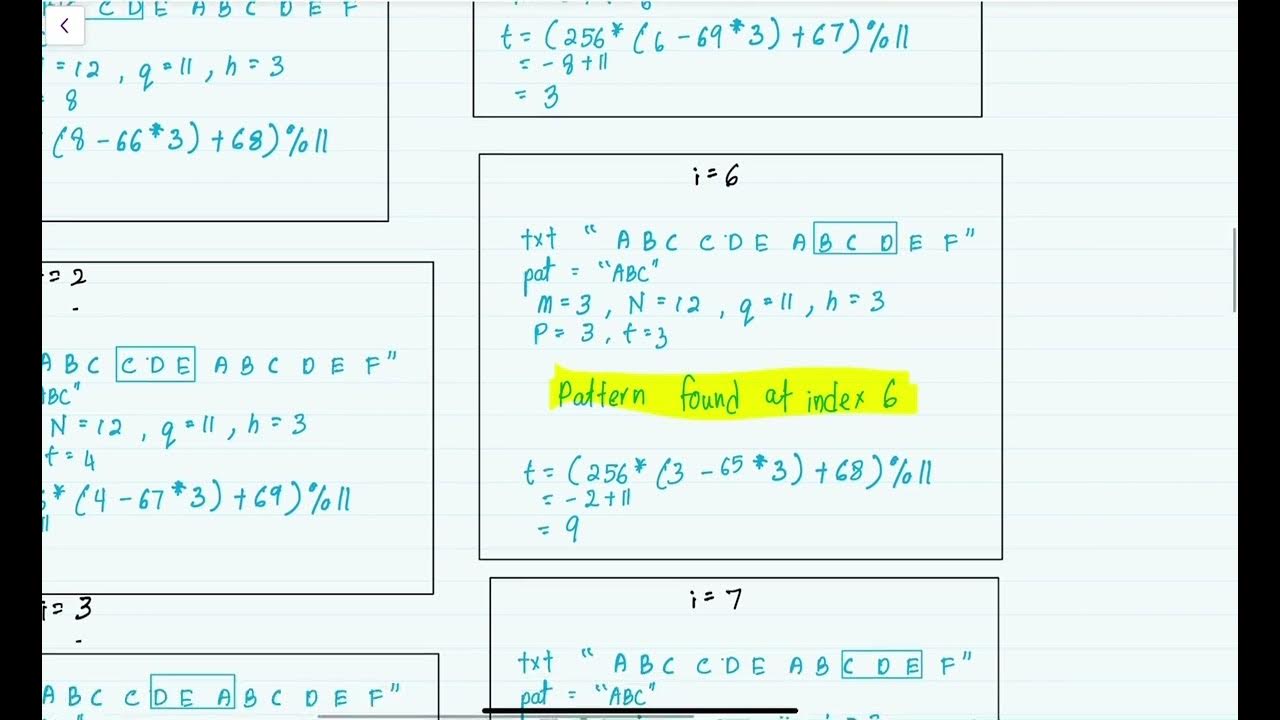 C D E A B C D E F
= 12 , q = 11 , h = 3
= 8
(8 - 66 * 3) + 68) % 11
= 2
A B C C D E A B C D E F"
ABC"
N = 12 , q = 11 , h = 3
t = 4
* (4 - 67 * 3) + 69) % 11
i = 3
A B C C D E A B C D E F"
t = (256 * (6 - 69 * 3) + 67) % 11
= - 8 + 11
= 3
i = 6
txt " A B C C D E A B C D E F"
pat = "ABC"
m = 3 , N = 12 , q = 11 , h = 3
P = 3 , t = 3
Pattern found at index 6
t = (256 * (3 - 65 * 3) + 68) % 11
= - 2 + 11
= 9
i = 7
txt " A B C C D E A B C D E F"
pat = "ABC"